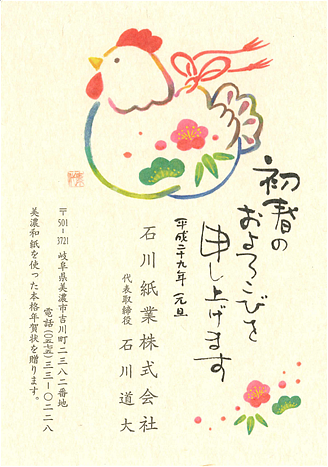 初春の
およろこびを
申し上げます
平成二十九年 元旦
石川紙業株式会社
代表取締役 石川道大
〒501-3721 岐阜県美濃市吉川町二三八二番地
電話(〇五七五)三三-〇二二八
美濃和紙を使った本格年賀状を贈ります。